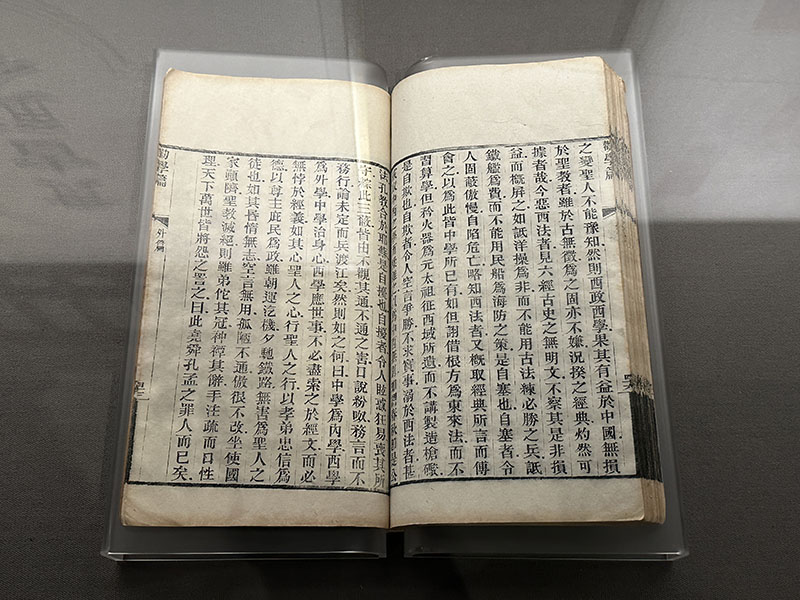 勸學篇
之變聖人不能豫知然則西政西學果其有益於中國無損
於聖教者雖於古無徵為之固亦不嫌況揆之經典灼然可
據者哉今惡西法者見六經古史之無明文不察其是非損
益而概屏之如詆洋操為非而不能用古法練必勝之兵詆
鐵艦為費而不能用民船為海防之策是自塞也自塞者令
人固蔽傲慢自陷危亡略知西法者又概取經典所言而傅
會之以為此皆中學所已有如但詡借根方為東來法而不
習算學但矜火器為元太祖征西域所遺而不講製造槍礮
是自欺也自欺者令人空言爭勝不求實事溺於西法者甚
是公
孔教合於耶穌是自擾也自擾者令人眩惑狂易喪其所
守綜此三蔽皆由不觀其通不通之害口說紛呶務言而不
務行論未定而兵渡江矣然則如之何曰中學為內學西學
為外學中學治身心西學應世事不必盡索之於經文而必
無悖於經義如其心聖人之心行聖人之行以孝弟忠信為
德以尊主庇民為政雖朝運汽機夕馳鐵路無害為聖人之
徒也如其昏惰無志空言無用孤陋不通傲很不改坐使國
家顛隮聖教滅絕則雖弟佗其冠神禫其辭手注疏而口性
理天下萬世皆將怨之詈之曰此堯舜孔孟之罪人而已矣
勸學篇
外篇